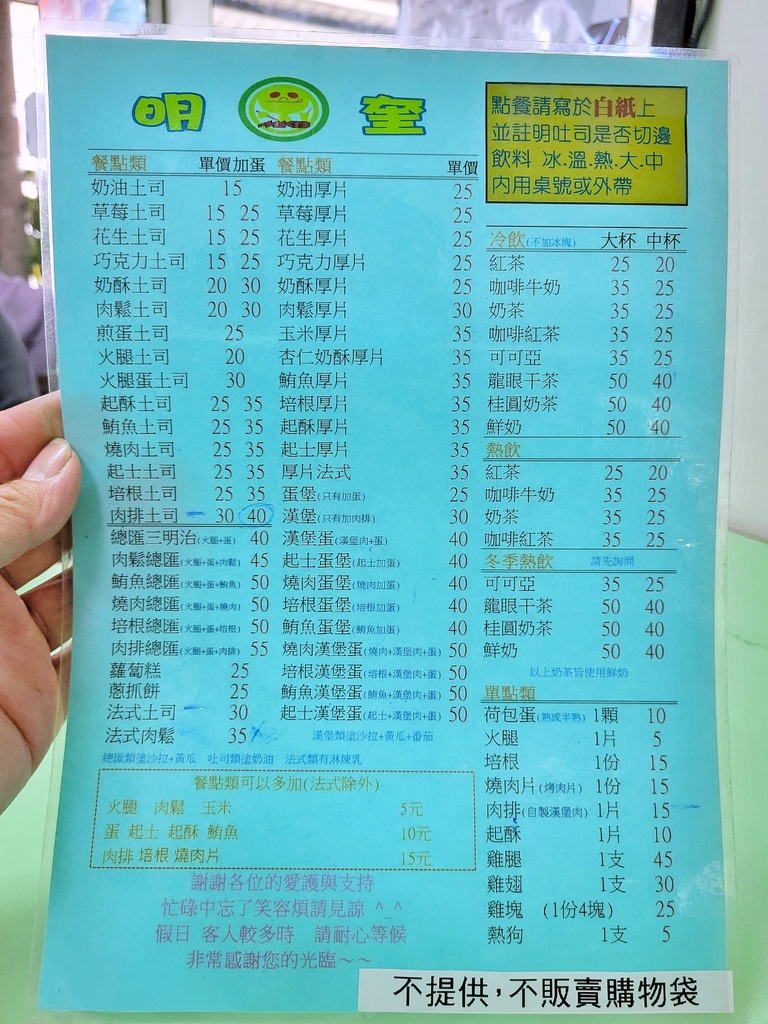 明 奎
點餐請寫於白紙上
並註明吐司是否切邊
飲料 冰.溫.熱.大.中
內用桌號或外帶
餐點類 單價 加蛋
奶油土司 15
草莓土司 15 25
花生土司 15 25
巧克力土司 15 25
奶酥土司 20 30
肉鬆土司 20 30
煎蛋土司 25
火腿土司 20
火腿蛋土司 30
起酥土司 25 35
鮪魚土司 25 35
燒肉土司 25 35
起士土司 25 35
培根土司 25 35
肉排土司 30 40
總匯三明治(火腿+蛋) 40
肉鬆總匯(火腿+蛋+肉鬆) 45
鮪魚總匯(火腿+蛋+鮪魚) 50
燒肉總匯(火腿+蛋+燒肉) 50
培根總匯(火腿+蛋+培根) 50
肉排總匯(火腿+蛋+肉排) 55
蘿蔔糕 25
蔥抓餅 25
法式土司 30
法式肉鬆 35
餐點類 單價
奶油厚片 25
草莓厚片 25
花生厚片 25
巧克力厚片 25
奶酥厚片 25
肉鬆厚片 30
玉米厚片 35
杏仁奶酥厚片 35
鮪魚厚片 35
培根厚片 35
起酥厚片 35
起士厚片 35
厚片法式 35
蛋堡(只有加蛋) 25
漢堡(只有加肉排) 30
漢堡蛋(漢堡肉+蛋) 40
起士蛋堡(起士加蛋) 40
燒肉蛋堡(燒肉加蛋) 40
培根蛋堡(培根加蛋) 40
鮪魚蛋堡(鮪魚加蛋) 40
燒肉漢堡蛋(燒肉+漢堡肉+蛋) 50
培根漢堡蛋(培根+漢堡肉+蛋) 50
鮪魚漢堡蛋(鮪魚+漢堡肉+蛋) 50
起士漢堡蛋(起士+漢堡肉+蛋) 50
漢堡類塗沙拉+黃瓜+番茄
總匯類塗沙拉+黃瓜 吐司類塗奶油 法式類有淋煉乳
餐點類可以多加(法式除外)
火腿 肉鬆 玉米 5元
蛋 起士 起酥 鮪魚 10元
肉排 培根 燒肉片 15元
謝謝各位的愛護與支持
忙碌中忘了笑容煩請見諒 ^_^
假日 客人較多時 請耐心等候
非常感謝您的光臨~~
冷飲(不加冰塊) 大杯 中杯
紅茶 25 20
咖啡牛奶 35 25
奶茶 35 25
咖啡紅茶 35 25
可可亞 35 25
龍眼干茶 50 40
桂圓奶茶 50 40
鮮奶 50 40
熱飲
紅茶 25 20
咖啡牛奶 35 25
奶茶 35 25
咖啡紅茶 35 25
冬季熱飲 請先詢問
可可亞 35 25
龍眼干茶 50 40
桂圓奶茶 50 40
鮮奶 50 40
以上奶茶皆使用鮮奶
單點類
荷包蛋(熟或半熟) 1顆 10
火腿 1片 5
培根 1份 15
燒肉片(烤肉片) 1份 15
肉排(自製漢堡肉) 1片 15
起酥 1片 10
雞腿 1支 45
雞翅 1支 30
雞塊 (1份4塊) 25
熱狗 1支 5
不提供,不販賣購物袋